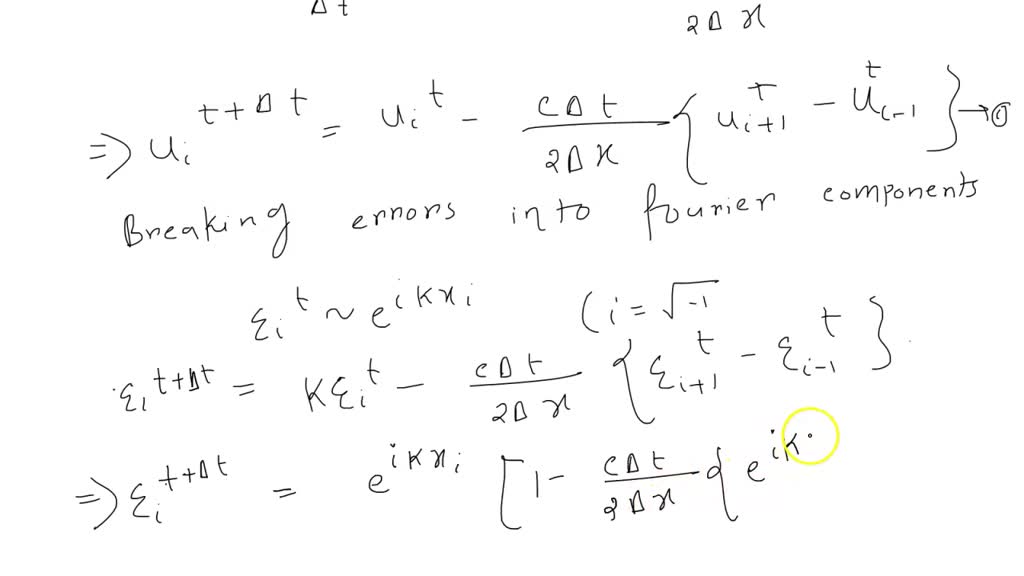 Δt 2Δx
⇒ u_i^{t+Δt} = u_i^t - \frac{cΔt}{2Δx} { u_{i+1}^t - u_{i-1}^t } → ①
Breaking errors into fourier components
ε_i^t ~ e^{ikx_i} (i = √-1
ε_i^{t+Δt} = Kε_i^t - \frac{cΔt}{2Δx} { ε_{i+1}^t - ε_{i-1}^t }
⇒ ε_i^{t+Δt} = e^{ikx_i} [ 1 - \frac{cΔt}{2Δx} { e^{ik